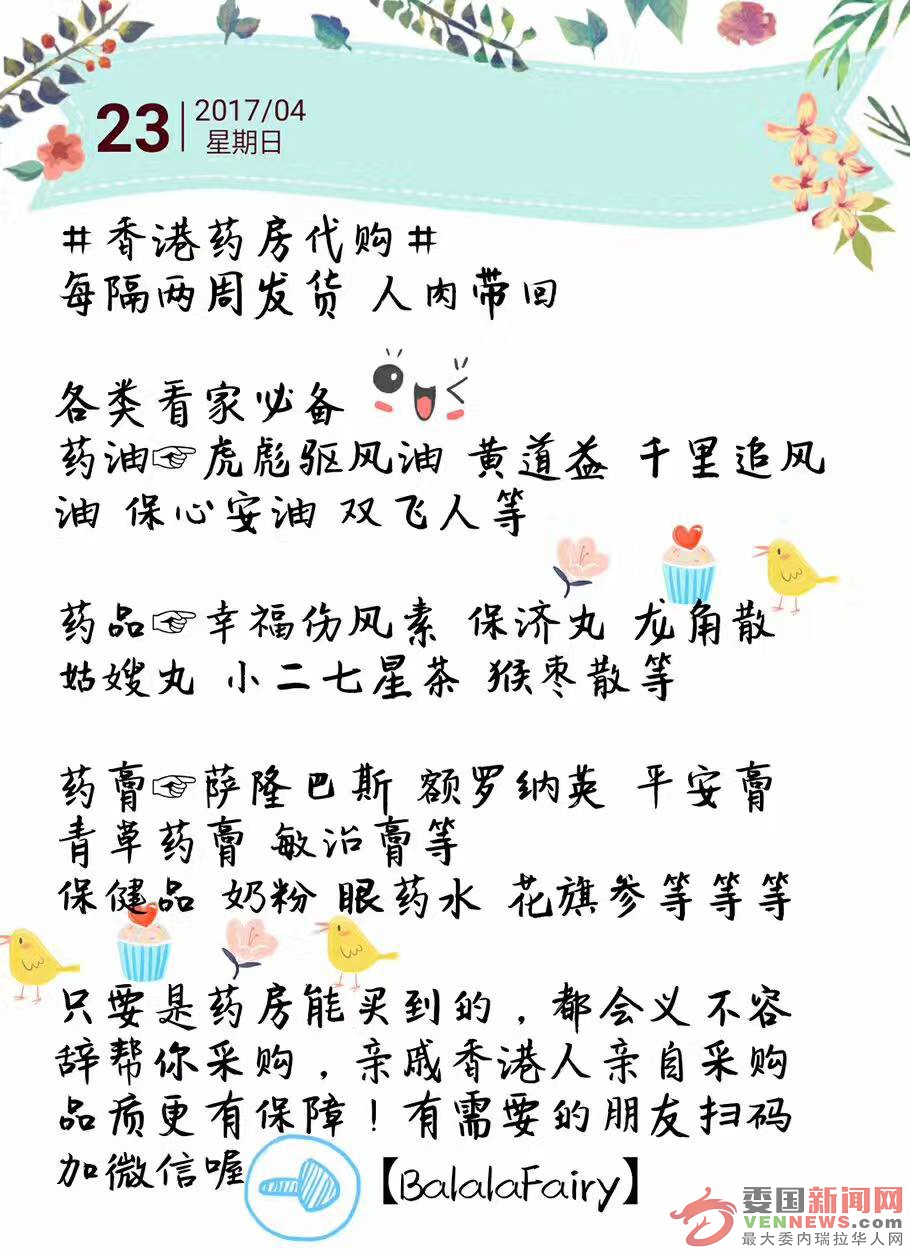 23
2017/04
星期日
#香港药房代购#
每隔两周发货 人肉带回
各类看家必备
药油☞虎彪驱风油 黄道益 千里追风
油 保心安油 双飞人等
药品☞幸福伤风素 保济丸 龙角散
姑嫂丸 小二七星茶 猴枣散等
药膏☞萨隆巴斯 额罗纳英 平安膏
青草药膏 敏治膏等
保健品 奶粉 眼药水 花旗参等等等
只要是药房能买到的，都会义不容
辞帮你采购，亲戚香港人亲自采购
品质更有保障！有需要的朋友扫码
加微信喔
【BalalaFairy】
委国新闻网
VENNEWS.com
最大委内瑞拉华人网